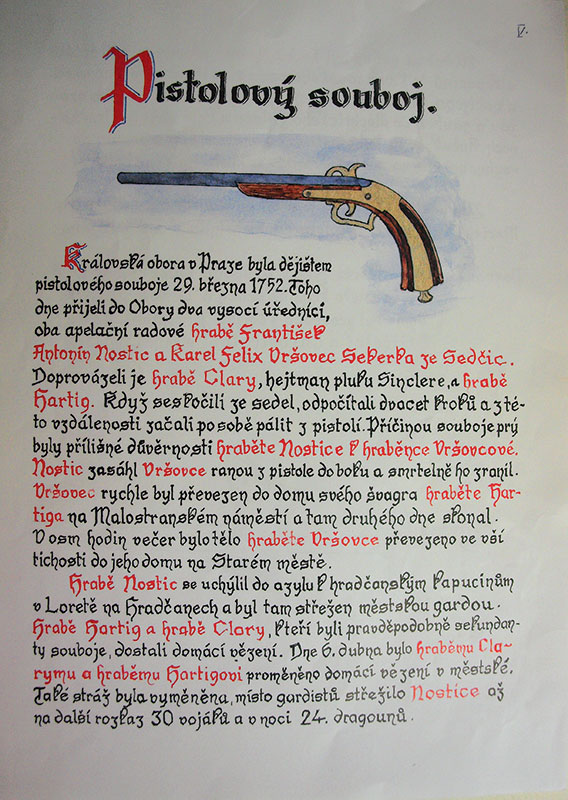 V.
Pistolový souboj.
Královská obora v Praze byla dějištěm
pistolového souboje 29. března 1752. Toho
dne přijeli do Obory dva vysocí úředníci,
oba apelační radové hrabě František
Antonín Nostic a Karel Felix Vršovec Sekerka ze Sedčic.
Doprovázeli je hrabě Clary, hejtman pluku Sinclere, a hrabě
Hartig. Když seskočili ze sedel, odpočítali dvacet kroků a z té-
to vzdálenosti začali po sobě pálit z pistolí. Příčinou souboje prý
byly přílišné důvěrnosti hraběte Nostice k hraběnce Vršovcové.
Nostic zasáhl Vršovce ranou z pistole do boku a smrtelně ho zranil.
Vršovec rychle byl převezen do domu svého švagra hraběte Har-
tiga na Malostranském náměstí a tam druhého dne skonal.
V osm hodin večer bylo tělo hraběte Vršovce převezeno ve vší
tichosti do jeho domu na Starém městě.
Hrabě Nostic se uchýlil do azylu k hradčanským kapucínům
v Loretě na Hradčanech a byl tam střežen městskou gardou.
Hrabě Hartig a hrabě Clary, kteří byli pravděpodobně sekundan-
ty souboje, dostali domácí vězení. Dne 6. dubna bylo hraběmu Cla-
rymu a hraběmu Hartigovi proměněno domácí vězení v městské.
Také stráž byla vyměněna, místo gardistů střežilo Nostice až
na další rozkaz 30 vojáků a v noci 24. dragounů.